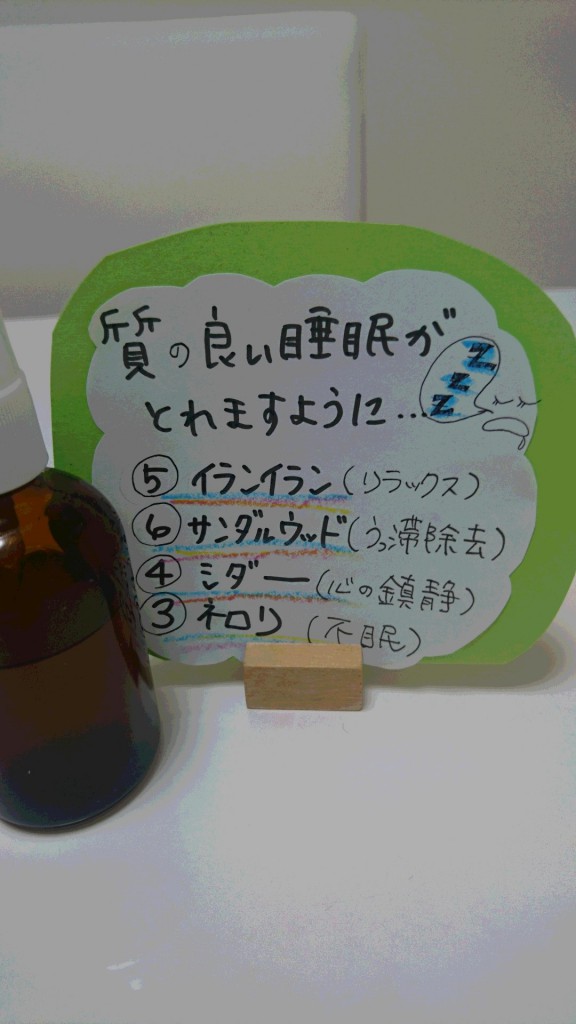 質の良い睡眠が
とれますように…
ZZZ
⑤ イランイラン(リラックス)
⑥ サンダルウッド(うっ滞除去)
④ シダー(心の鎮静)
③ ネロリ(不眠)